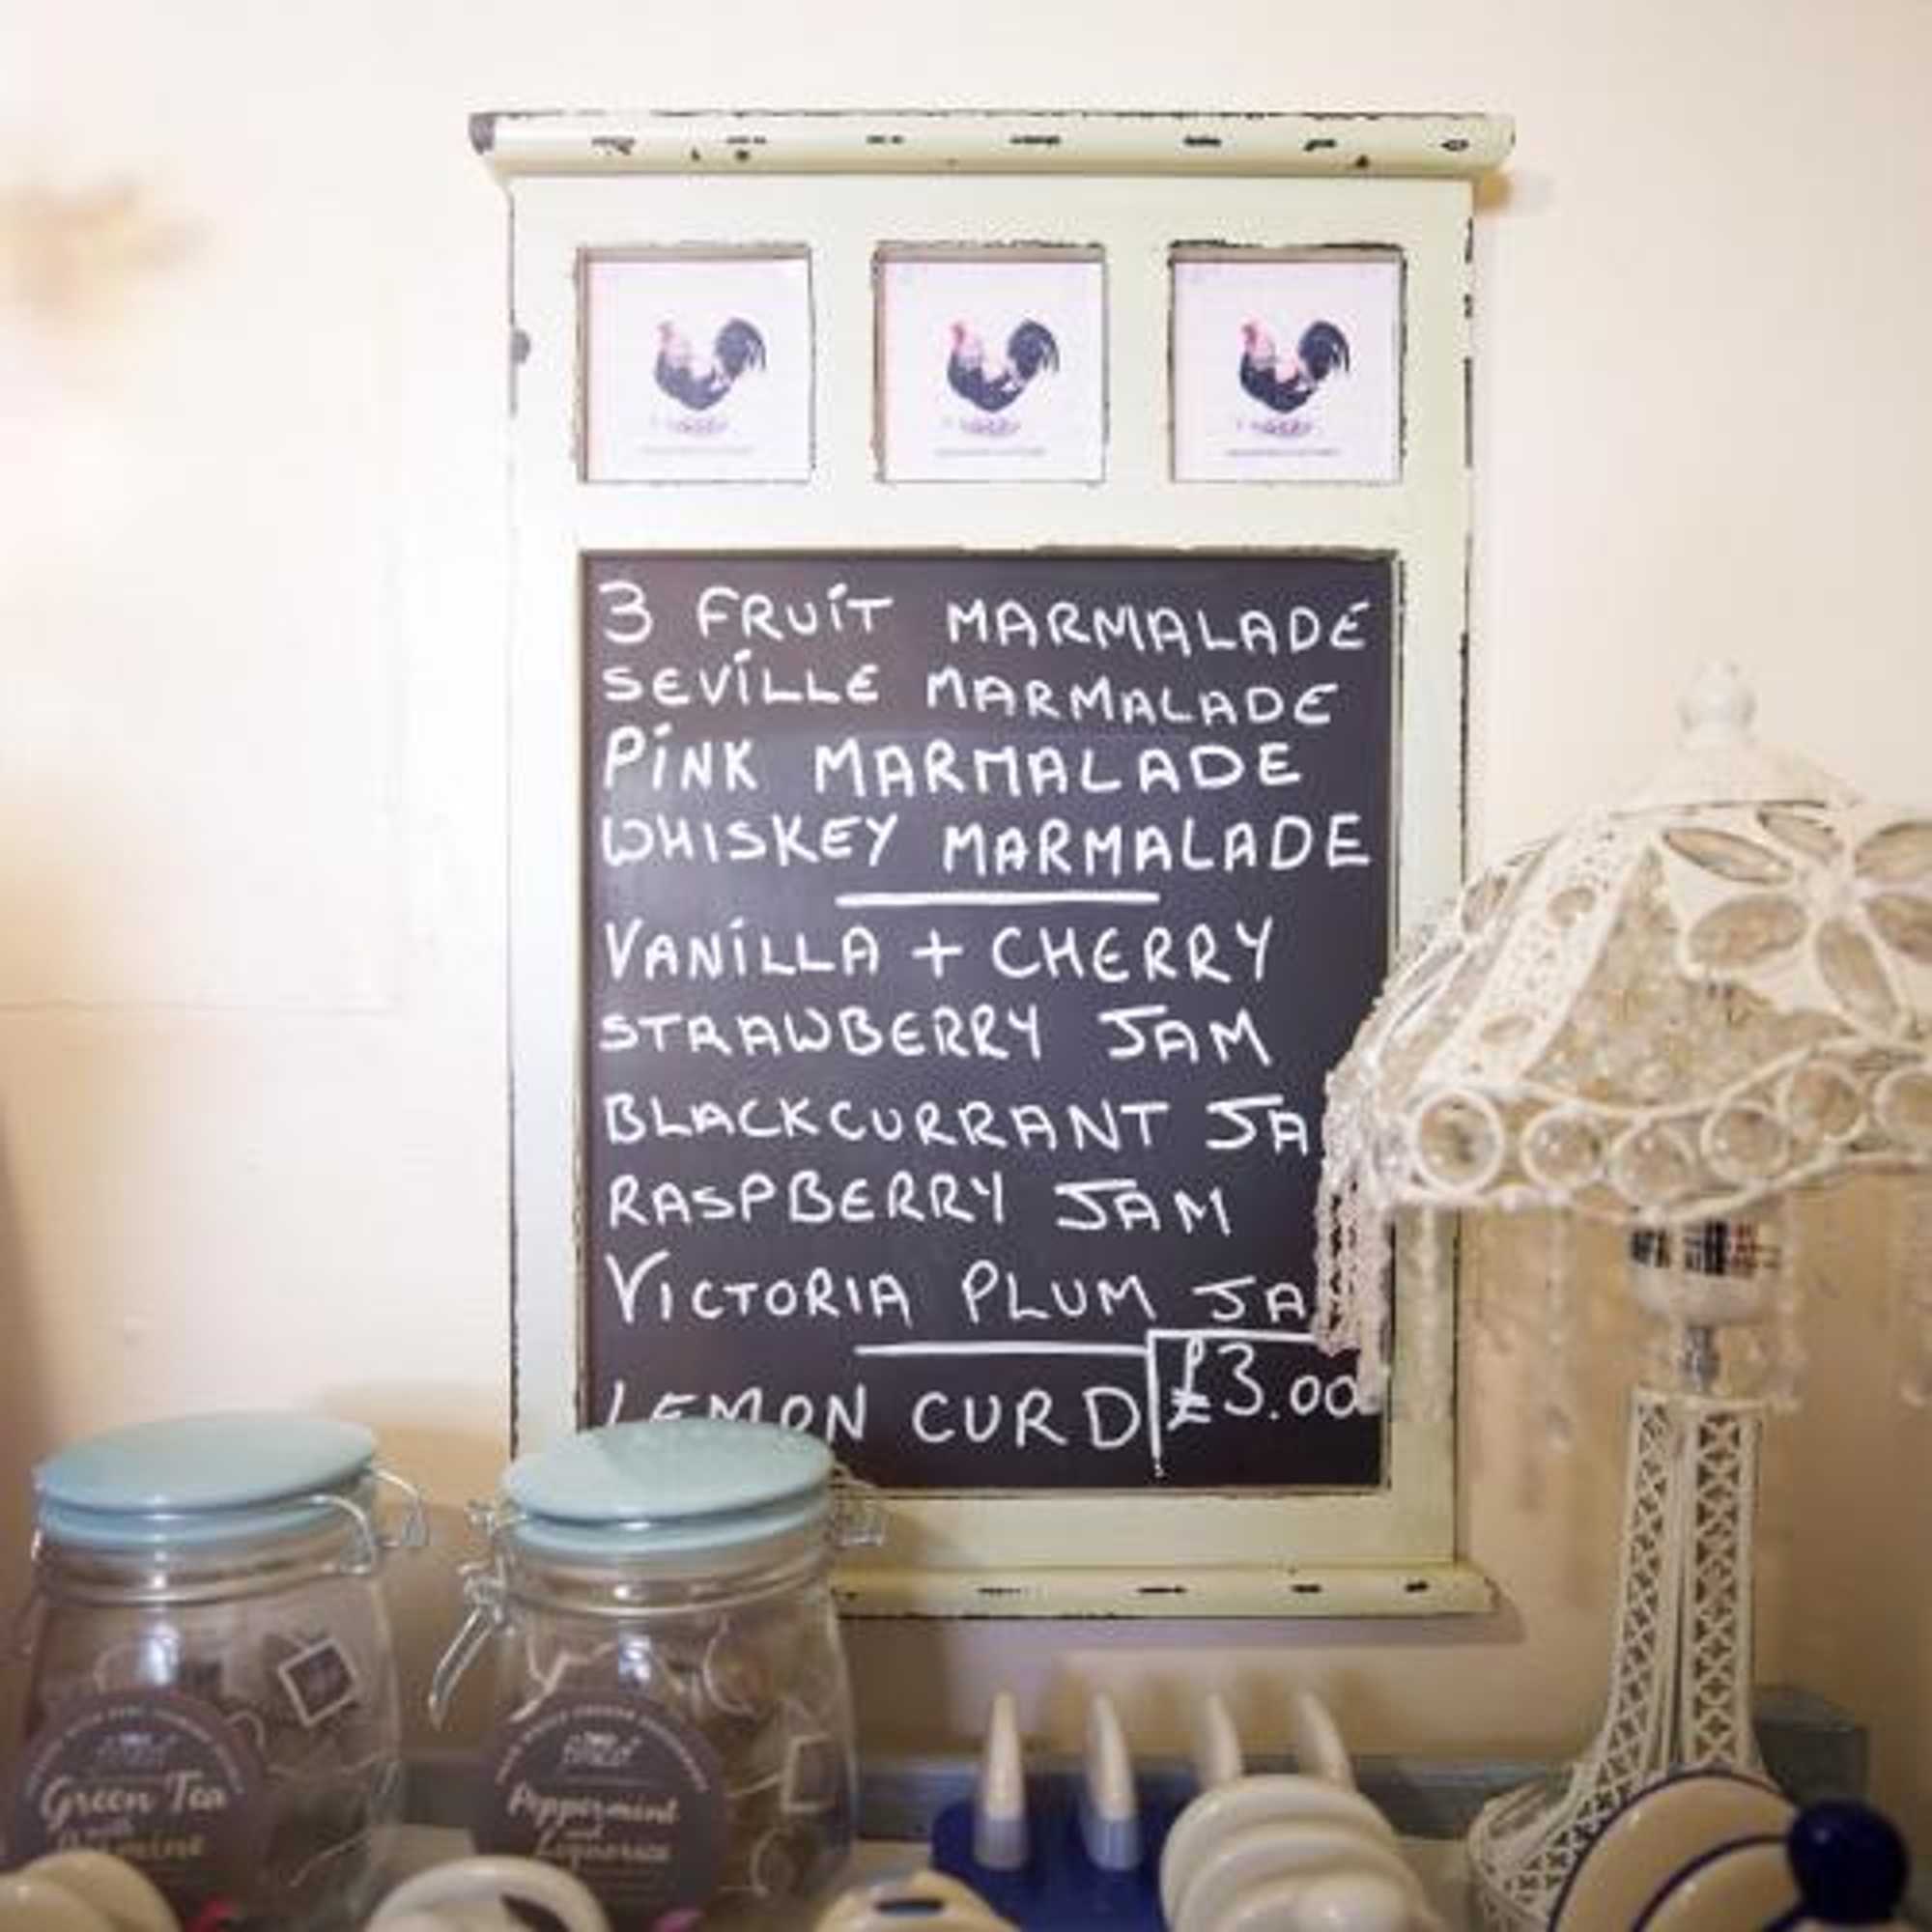 3 FRUIT MARMALADE
SEVILLE MARMALADE
PINK MARMALADE
WHISKEY MARMALADE
VANILLA + CHERRY
STRAWBERRY JAM
BLACKCURRANT JA
RASPBERRY JAM
VICTORIA PLUM JA
LEMON CURD £3.00
Green Tea
with
Peppermint
and
Liquorice